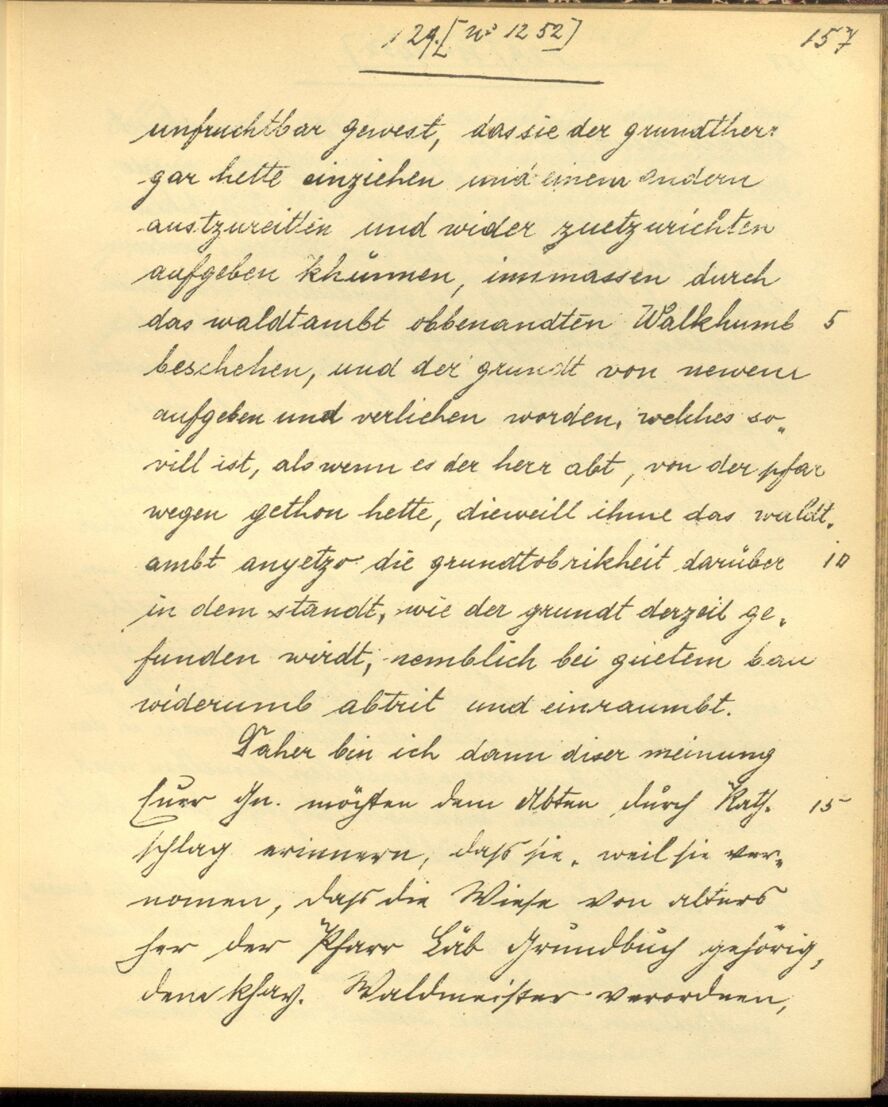 129. [Nº 1252] 157
unfruchtbar gewest, das sie der grundtherr
gar hette einziehen und einem andern
austzureitten und wider zuetzurichten
aufgeben khünnen, inmassen durch
das waldtambt obbenandten Walkhumb 5
beschehen, und der grundt von newem
aufgeben und verlichen worden, welches so„
vill ist, als wenn es der herr abt, von der pfar
wegen gethon hette, dieweill ihme das waldt„
ambt anyetzo die grundtobrikheit darüber 10
in dem standt, wie der grundt derzeit ge„
funden wirdt, nemblich bei guetem bau
widerumb abtrit und einraumbt.
Daher bin ich dann diser meinung
Euer Gn. möchten dem Abten durch Rath„ 15
schlag erinnern, dass sie, weil sie ver„
nomen, dass die Wiese von alters
her der Pfarr Läb Grundbuch gehörig,
dem khay. Waldmeister verordnen,